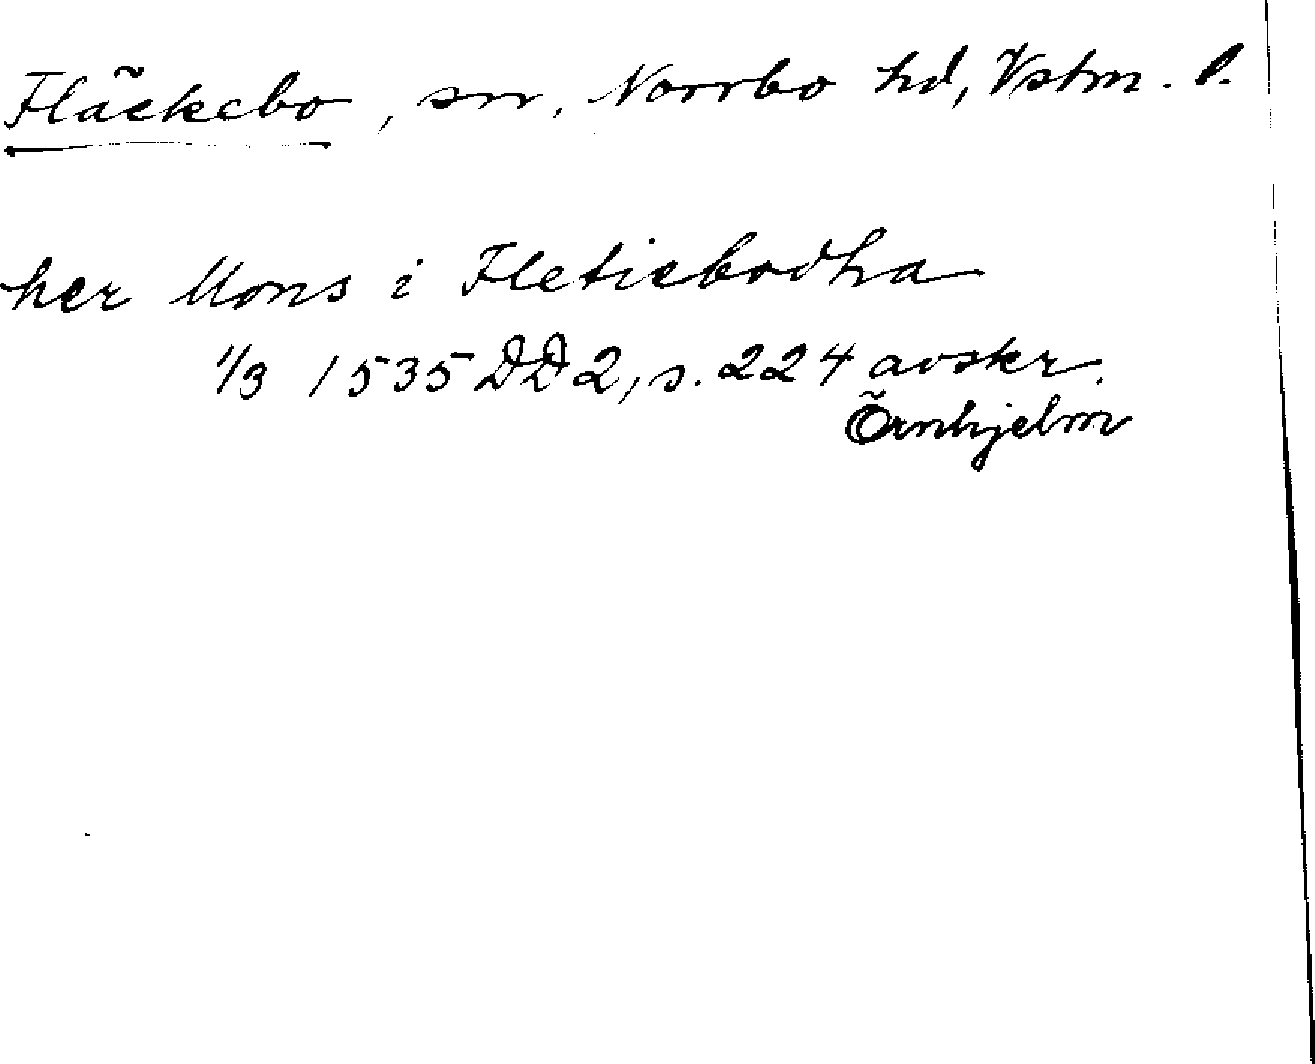 Fläckebo, sn, Norrbo hd, Vstm. l.
her Mons i Fletiebodha
1/3 1535 DD 2, s. 224 avskr.
Örnhjelm